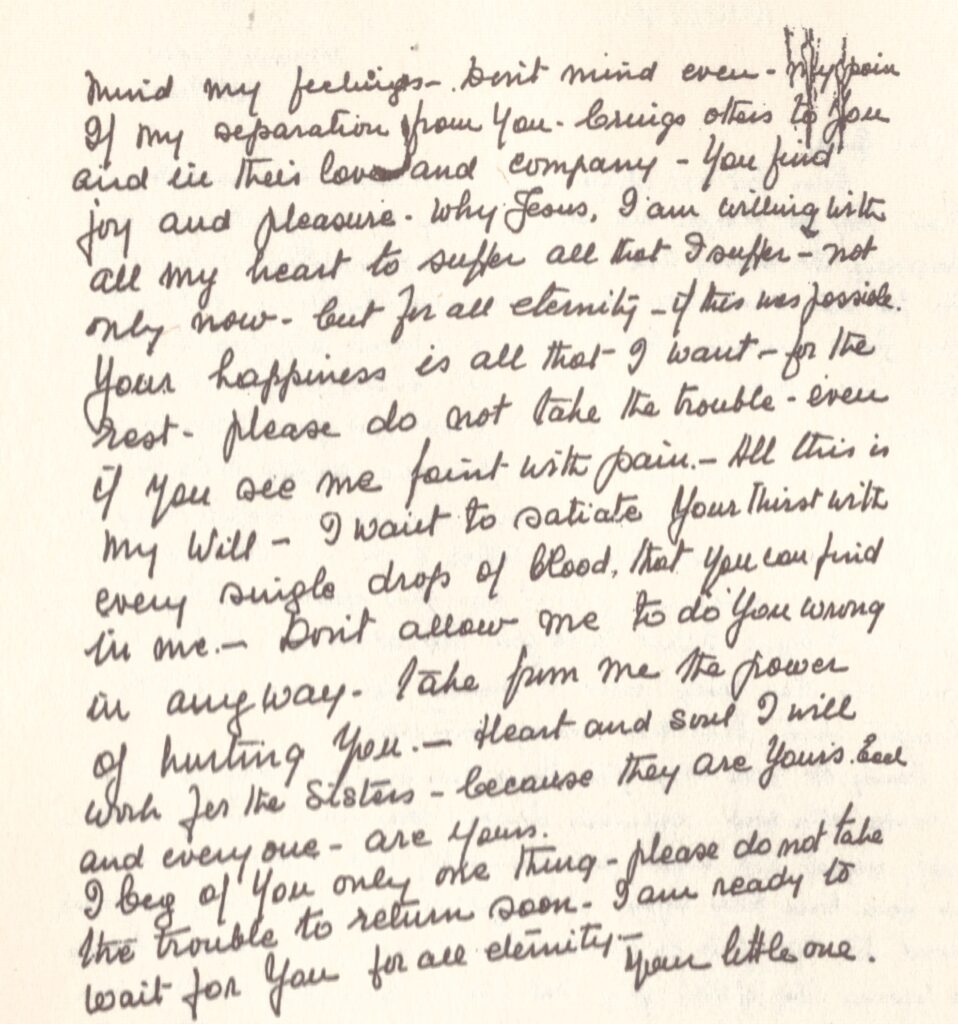 mind my feelings – Don't mind even – my pain
If my separation from You – brings others to You
and in their love and company – You find
joy and pleasure – why Jesus, I am willing with
all my heart to suffer all that I suffer – not
only now – but for all eternity – if this was possible.
Your happiness is all that I want – for the
rest – please do not take the trouble – even
if you see me faint with pain. – All this is
my Will – I want to satiate Your thirst with
every single drop of blood, that You can find
in me. – Don't allow me to do You wrong
in any way – take from me the power
of hurting You. – Heart and soul I will
work for the Sisters – because they are Yours. Each
and every one – are Yours.
I beg of You only one thing – please do not take
the trouble to return soon. – I am ready to
wait for You for all eternity –
Your little one.